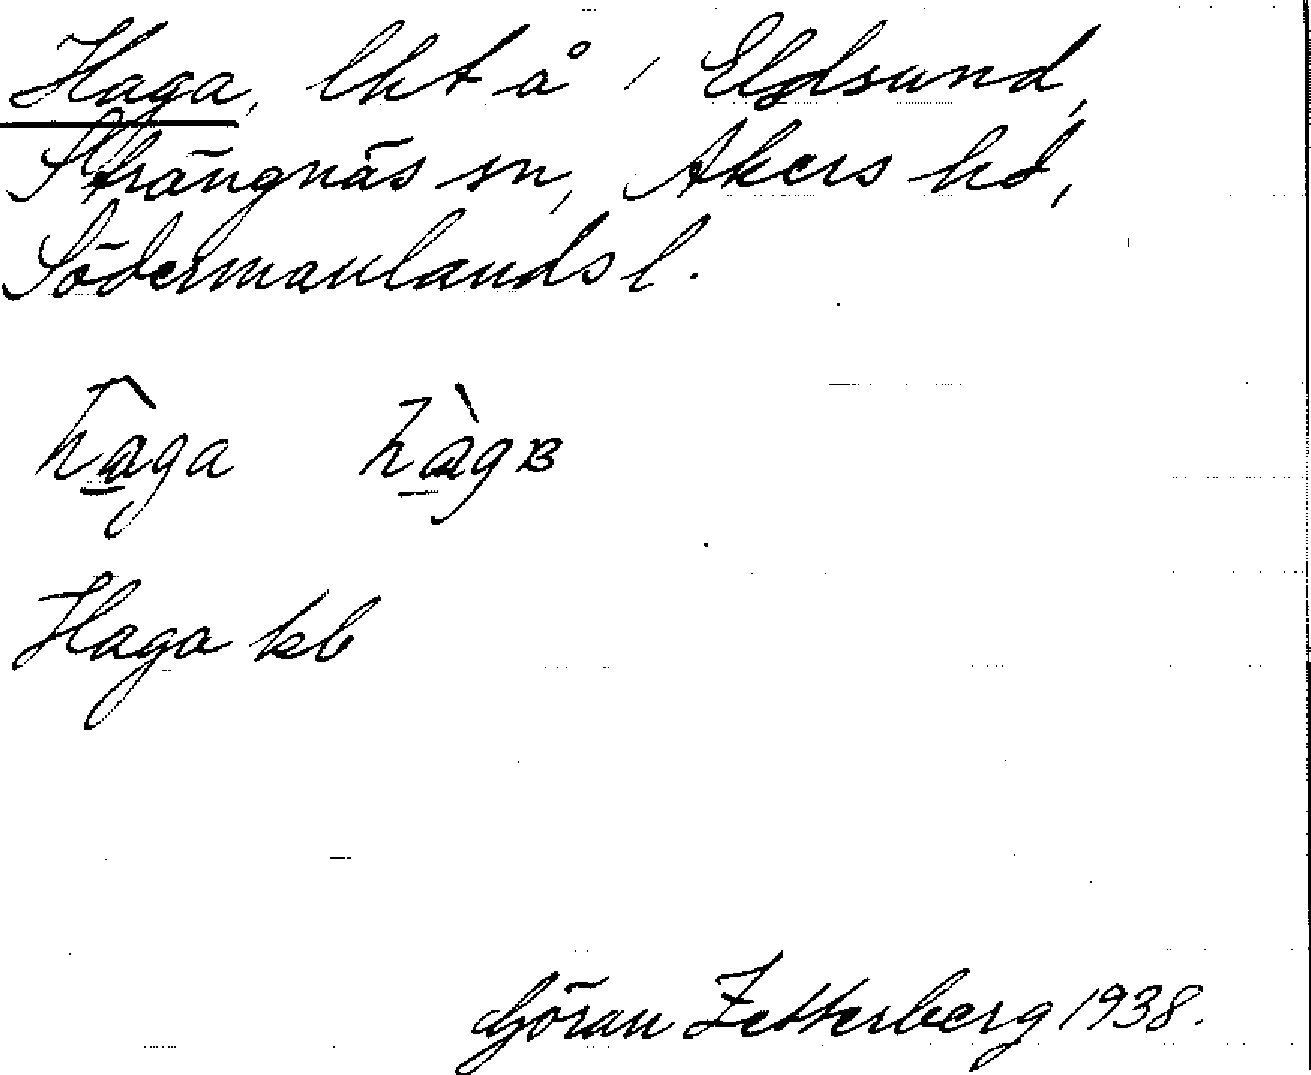 Haga, lht å / Eldsund,
Strängnäs sn, Åkers hd,
Södermanlands l.
hâ̱ga hà̱gʙ
Haga kb
Göran Zetterberg 1938.